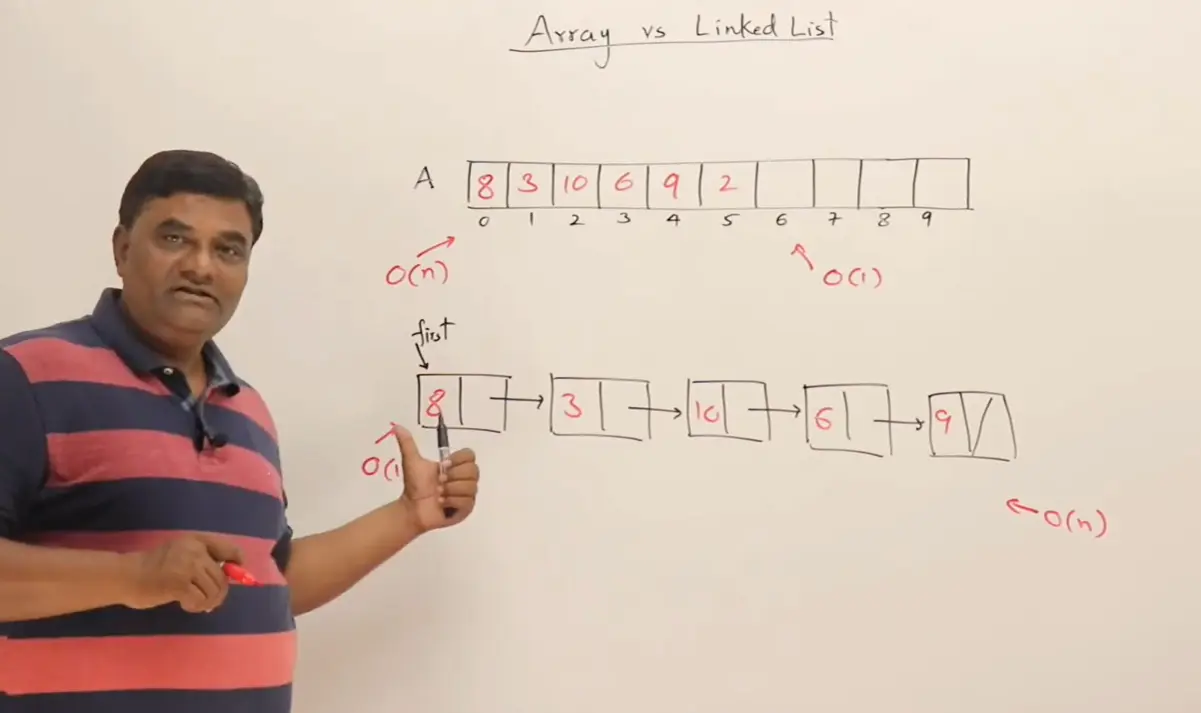 Array vs Linked List
A 8 3 10 6 9 2
0 1 2 3 4 5 6 7 8 9
O(n) O(1)
first
8 3 10 6 9
O(1
O(n)